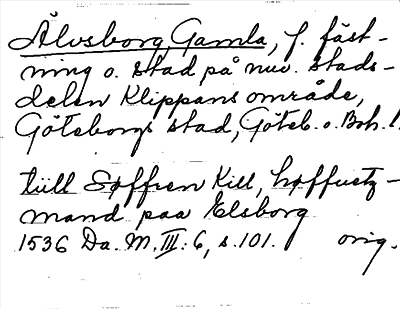 Älvsborg, Gamla, f. fäst-
ning o. stad på nuv. stads-
delen Klippans område,
Göteborgs stad, Göteb. o. Boh. l.
till Søffren Kill, høffuetz-
mand paa Elsborg
1536 Da. M. III: 6, s. 101. orig.